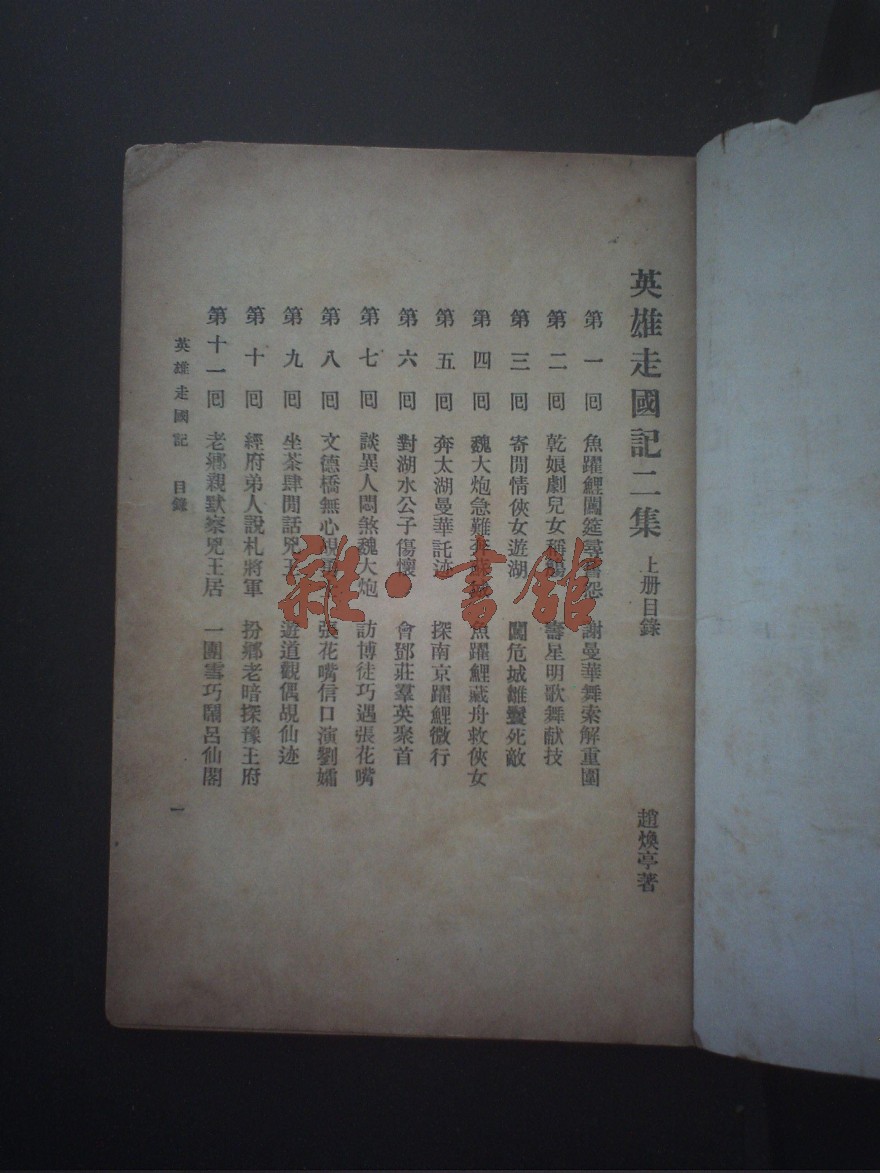 英雄走國記二集 上册目錄 趙煥亭著
第一回 魚躍鯉鬧筵尋舊怨 謝曼華舞索解重圍
第二回 乾娘劇兒女稱觴 壽星明歌舞献技
第三回 寄閒情俠女遊湖 闖危城雛鬟死敵
第四回 魏大炮急難奔 魚躍鯉藏舟救俠女
第五回 奔太湖曼華託迹 探南京躍鯉微行
第六回 對湖水公子傷懷 會鄧莊羣英聚首
第七回 談異人悶煞魏大炮 訪博徒巧遇張花嘴
第八回 文德橋無心 張花嘴信口演劉孀
第九回 坐茶肆閒話兇王 遊道觀偶覘仙迹
第十回 經府弟人說札將軍 扮鄉老暗探豫王府
第十一回 老鄉親默察兇王居 一團雪巧鬧呂仙閣
英雄走國記 目錄 一
雜·書館